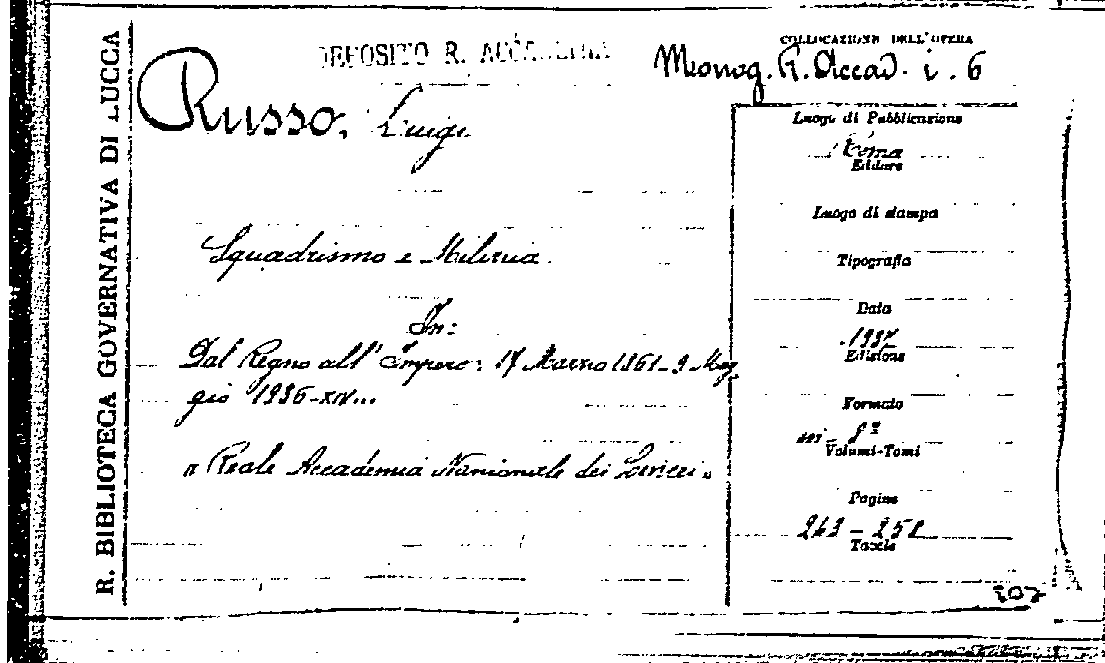 R. BIBLIOTECA GOVERNATIVA DI LUCCA
DEPOSITO R. ACCADEMIA
COLLOCAZIONE DELL'OPERA
Monog. R. Accad. i. 6
Russo, Luigi
Squadrismo e Milizia
In:
Dal Regno all' Impero: 17 Marzo 1861-9 Mag
gio 1936-XIV...
"Reale Accademia Nazionale dei Lincei"
Luogo di Pubblicazione
Roma
Editore
Luogo di stampa
Tipografia
Data
1937
Edizione
Formato
in-8º
Volumi-Tomi
Pagine
Tavole